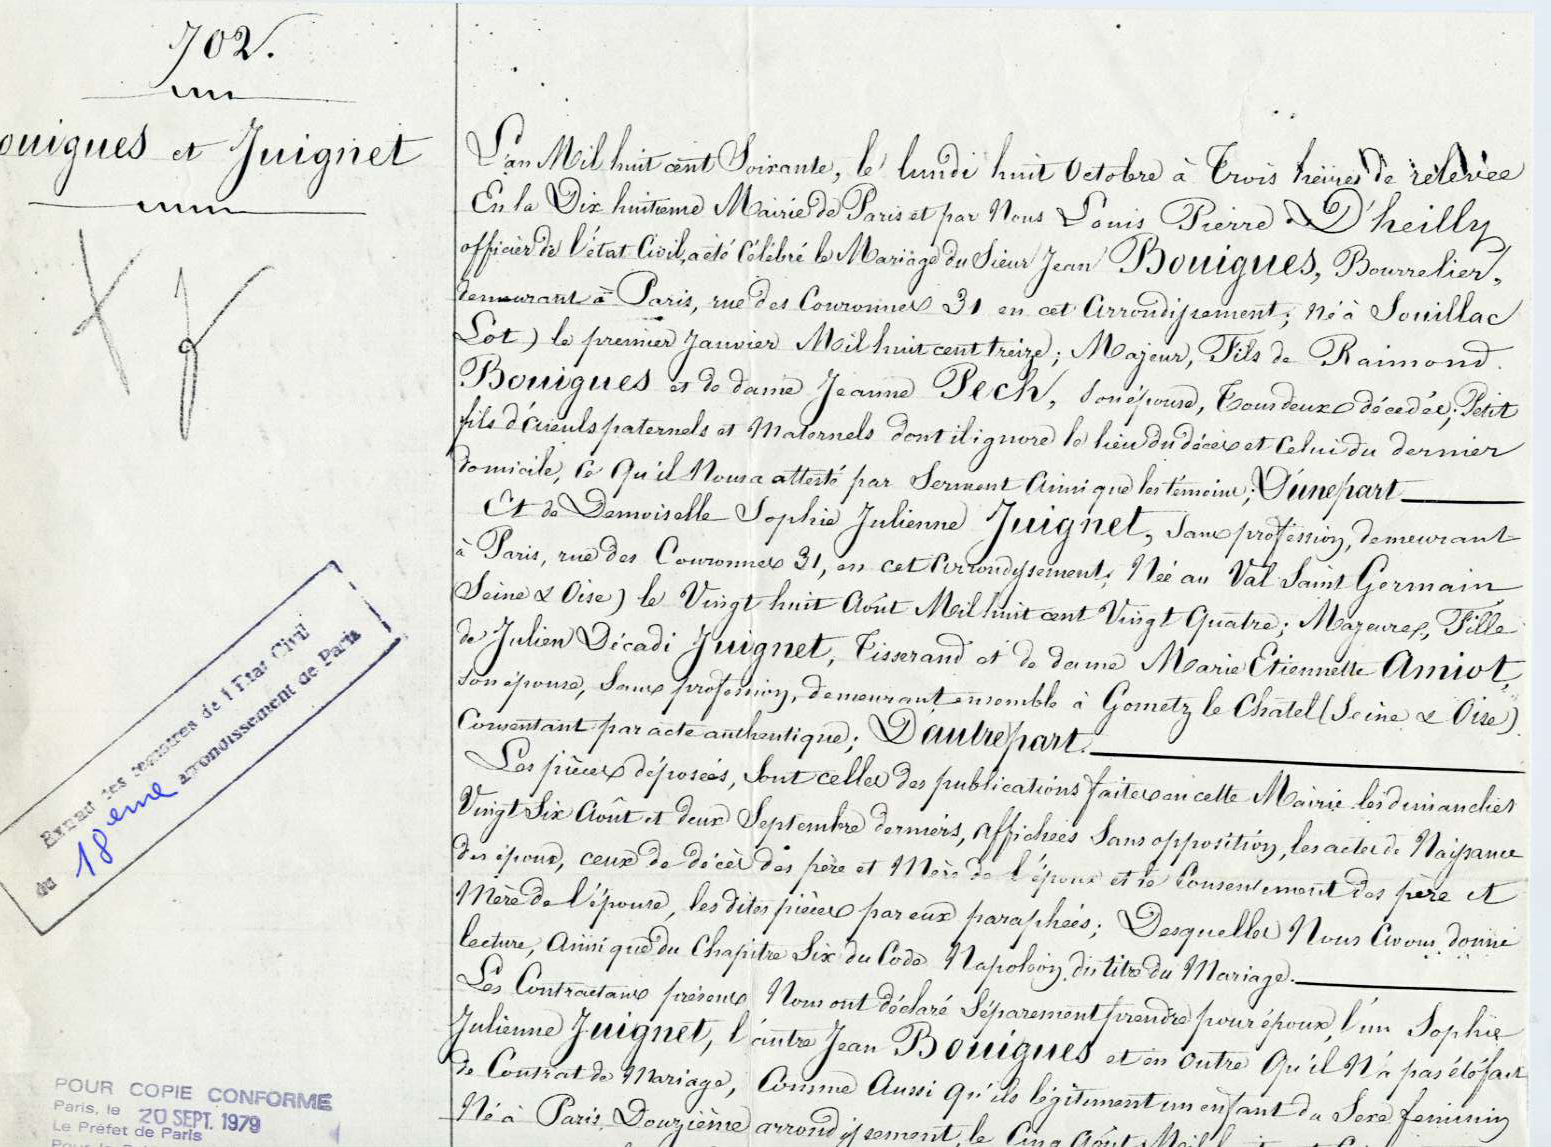 702.
ouigues et Juignet
L'an Mil huit cent Soixante, le lundi huit Octobre à Trois heures de relevée
En la Dix huitième Mairie de Paris et par Nous Louis Pierre D'heilly
officier de l'état Civil, a été Célébré le Mariage du Sieur Jean Bouigues, Bourrelier,
demeurant à Paris, rue des Couronnes 31 en cet Arrondissement; Né à Souillac
Lot) le premier Janvier Mil huit cent treize; Majeur, Fils de Raimond
Bouigues et de dame Jeanne Pech, son épouse, Tous deux décédés; Petit
fils d'aïeuls paternels et Maternels dont il ignore le lieu du décès et Celui du dernier
domicile, Ce qu'il Nous a attesté par Serment Ainsi que les témoins; D'une part
Et de Demoiselle Sophie Julienne Juignet, sans profession, demeurant
à Paris, rue des Couronnes 31, en cet Arrondissement; Née au Val Saint Germain
Seine & Oise) le Vingt huit Août Mil huit cent Vingt Quatre; Majeure, Fille
de Julien Décadi Juignet, Tisserand et de dame Marie Etiennette Amiot,
son épouse, Sans profession, demeurant ensemble à Gometz le Chatel (Seine & Oise)
Consentant par acte authentique; D'autre part.
Les pièces déposées, Sont celles des publications faites en cette Mairie les dimanches
Vingt Six Août et deux Septembre derniers, Affichées Sans opposition, les actes de Naissance
des époux, ceux de décès des père et Mère de l'époux et le Consentement des père et
Mère de l'épouse, les dites pièces par eux paraphées; Desquelles Nous Avons donné
lecture, Ainsi que du Chapitre Six du Code Napoléon, du titre du Mariage.
Les Contractans présens Nous ont déclaré Séparement prendre pour époux, l'un Sophie
Julienne Juignet, l'autre Jean Bouigues et en outre Qu'il N'a pas été fait
de Contrat de Mariage, Comme Aussi qu'ils légitiment un enfant du Sexe feminin
Né à Paris, Douzième arrondissement, le Cinq Août Mil
Extrait des registres de l'Etat Civil
du 18eme arrondissement de Paris
POUR COPIE CONFORME
Paris, le 20 SEPT. 1979
Le Préfet de Paris